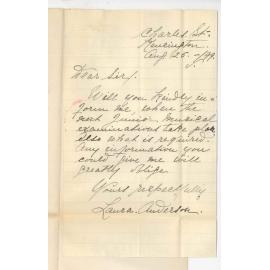 Charles St.
Kensington
Aug 25 - /99.
Dear Sir/.
Will you kindly in-
form me, when the
next Junior musical
examinations take place
also what is required.
Any information you
could give me will
greatly oblige
Yours respectfully
Laura Anderson.